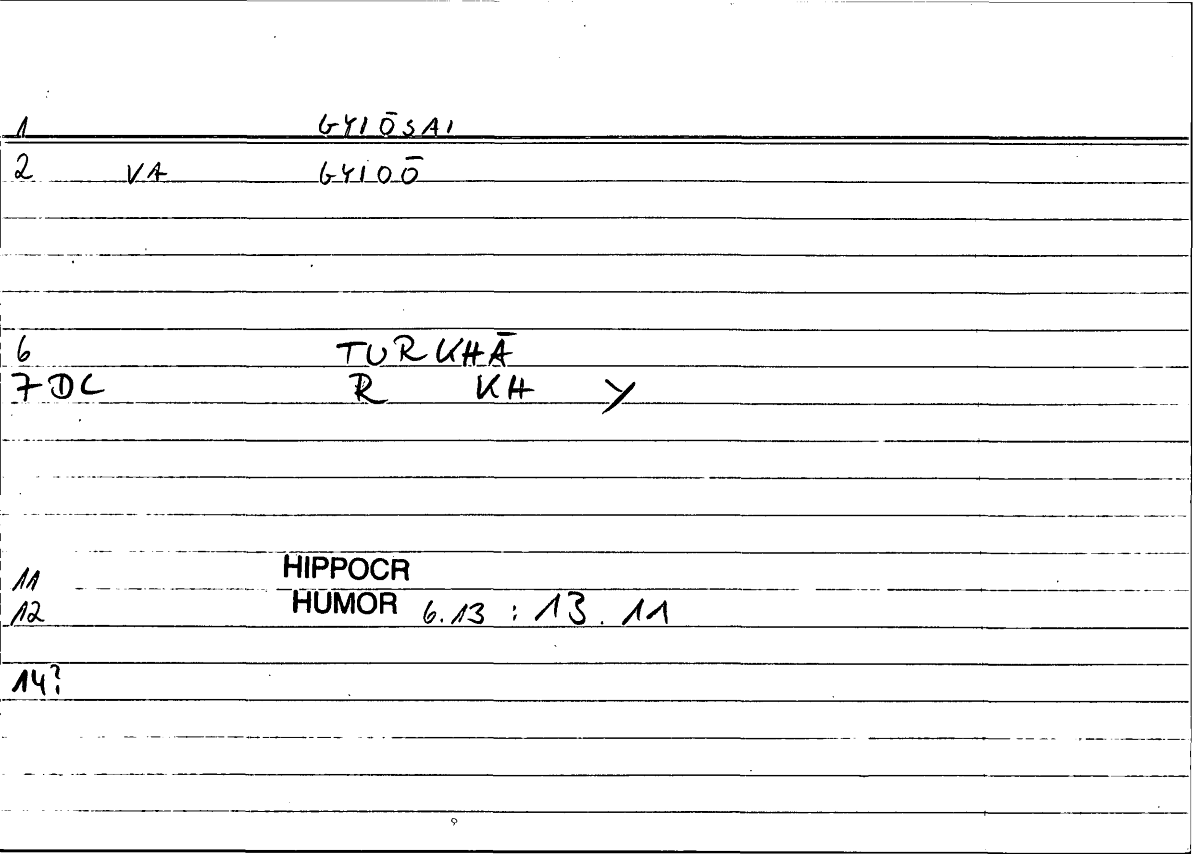 1 GYIŌSAI
2 VA GYIOŌ
6 TURKHĀ
7 DC R KH Y
11 HIPPOCR
12 HUMOR 6.13 : 13.11
14?